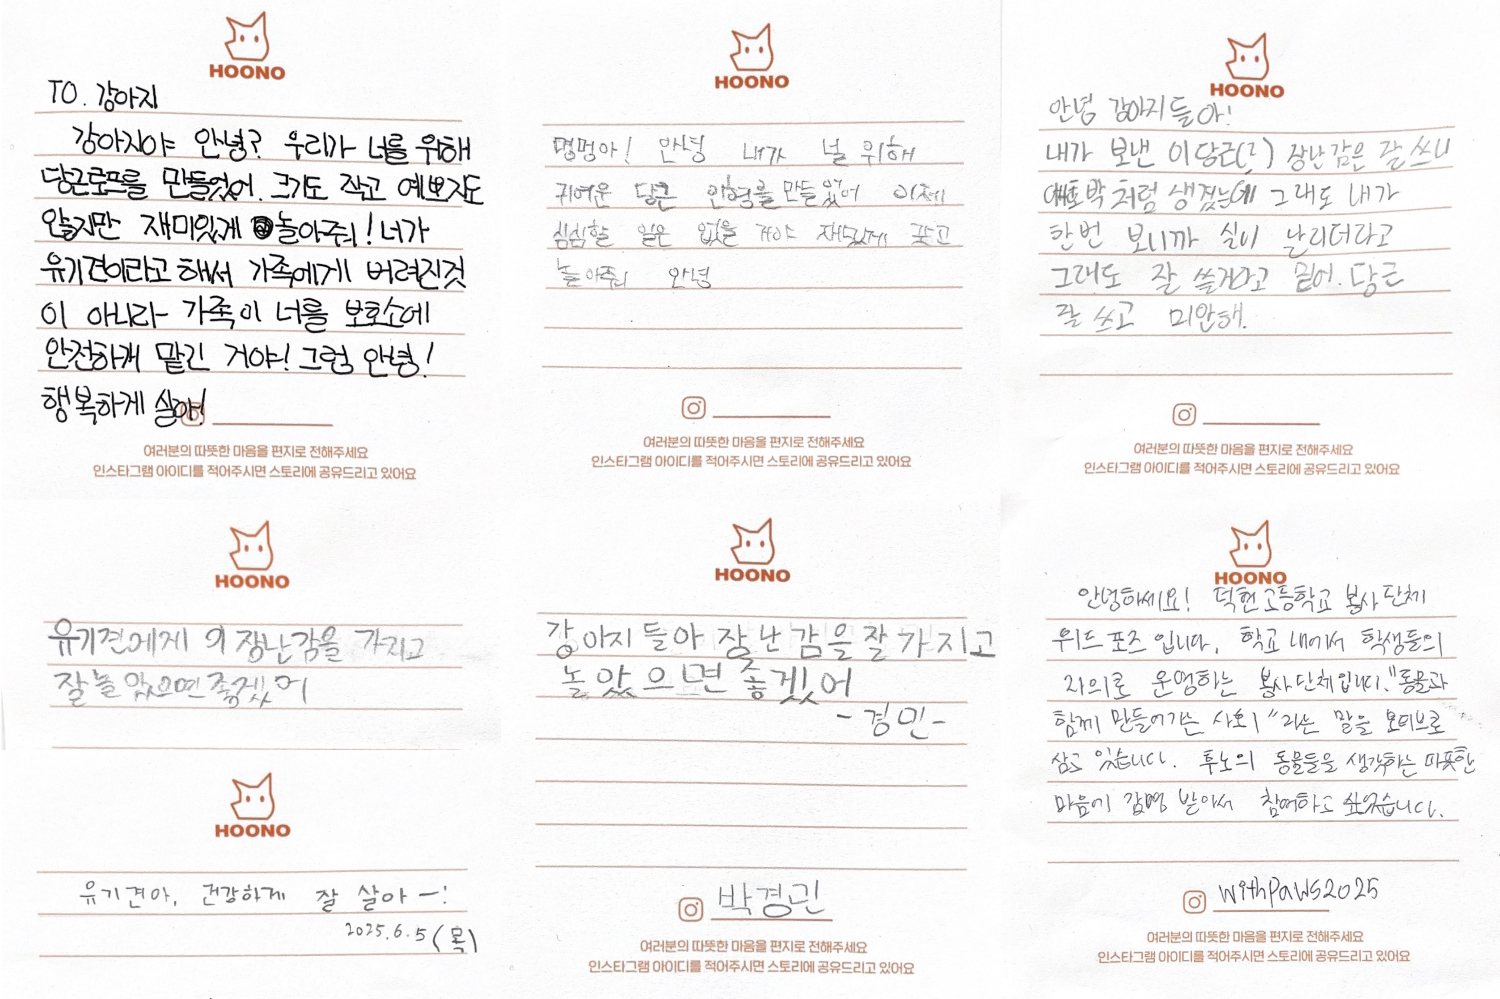 HOONO
TO. 강아지
강아지야 안녕? 우리가 너를 위해
당근로프를 만들었어. 크기도 작고 예쁘지도
않지만 재미있게 놀아줘! 너가
유기견이라고 해서 가족에게 버려진것
이 아니라 가족이 너를 보호소에
안전하게 맡긴 거야! 그럼 안녕!
행복하게 살아!
여러분의 따뜻한 마음을 편지로 전해주세요
인스타그램 아이디를 적어주시면 스토리에 공유드리고 있어요
HOONO
멍멍아! 안녕 내가 널 위해
귀여운 당근 인형을 만들었어 이제
심심할 일은 없을 거야 재밌게 갖고
놀아줘 안녕
여러분의 따뜻한 마음을 편지로 전해주세요
인스타그램 아이디를 적어주시면 스토리에 공유드리고 있어요
HOONO
안녕 강아지들아!
내가 보낸 이 당근(?) 장난감은 잘 쓰니
애호박처럼 생겼는데 그래도 내가
한번 보니까 실이 난리더라고
그래도 잘 쓸거라고 믿어. 당근
잘 쓰고 미안해.
여러분의 따뜻한 마음을 편지로 전해주세요
인스타그램 아이디를 적어주시면 스토리에 공유드리고 있어요
HOONO
유기견에게 이 장난감을 가지고
잘놀았으면 좋겠어
HOONO
유기견아, 건강하게 잘 살아ㅡ!
2025.6.5(목)
HOONO
강아지들아 장난감을 잘 가지고
놀았으면 좋겠어
-경민-
박경민
여러분의 따뜻한 마음을 편지로 전해주세요
인스타그램 아이디를 적어주시면 스토리에 공유드리고 있어요
HOONO
안녕하세요! 덕현고등학교 봉사단체
위드포즈입니다. 학교 내에서 학생들의
지의로 운영하는 봉사단체입니다. "동물과
함께 만들어가는 사회"라는 말을 모티브로
삼고 있습니다. 후노의 동물들을 생각하는 따뜻한
마음에 감명 받아서 참여하고 싶었습니다.
withpaws2025
여러분의 따뜻한 마음을 편지로 전해주세요
인스타그램 아이디를 적어주시면 스토리에 공유드리고 있어요